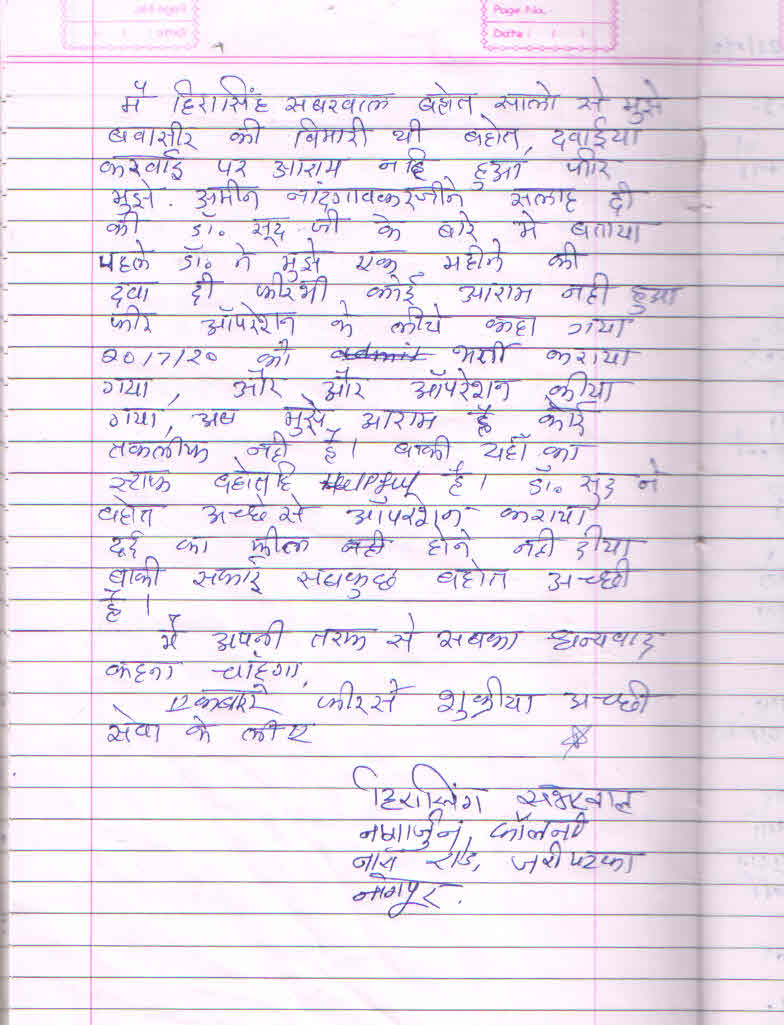 Page No.
Date :
में हिरासिंह सबरवाल बहोत सालो से मुझे
बवासीर की बिमारी थी बहोत दवाईया
करवाई पर आराम नहि हुआ फीर
मुझे. अमीन नांदगावकरजीने सलाह दी
की डॉ. सूद जी के बारे मे बताया
पहले डॉ. ने मुझे एक महीने की
दवा दी फीरभी कोई आराम नही हुआ
फीर ऑपरेशन के लीये कहा गया
20/7/20 को admit भर्ती कराया
गया, और और ऑपरेशन कीया
गया, अब मुझे आराम है कोई
तकलीफ नही है। बाकी यहाँ का
स्टाफ बहोतहि Helpful है। डॉ. सुद ने
बहोत अच्छेसे ऑपरेशन कराया
दर्द का फील नही होने नही दीया
बाकी सफाई सबकुछ बहोत अच्छी
है।
मै अपनी तरफ से सबका धन्यवाद
कहना चाहंगा,
एकबार फीरसे शुक्रीया अच्छी
सेवा के लीए
हिरासिंग सभरवाल
नागार्जुन कॉलनी
नारा रोड, जरीपटका
नागपुर.